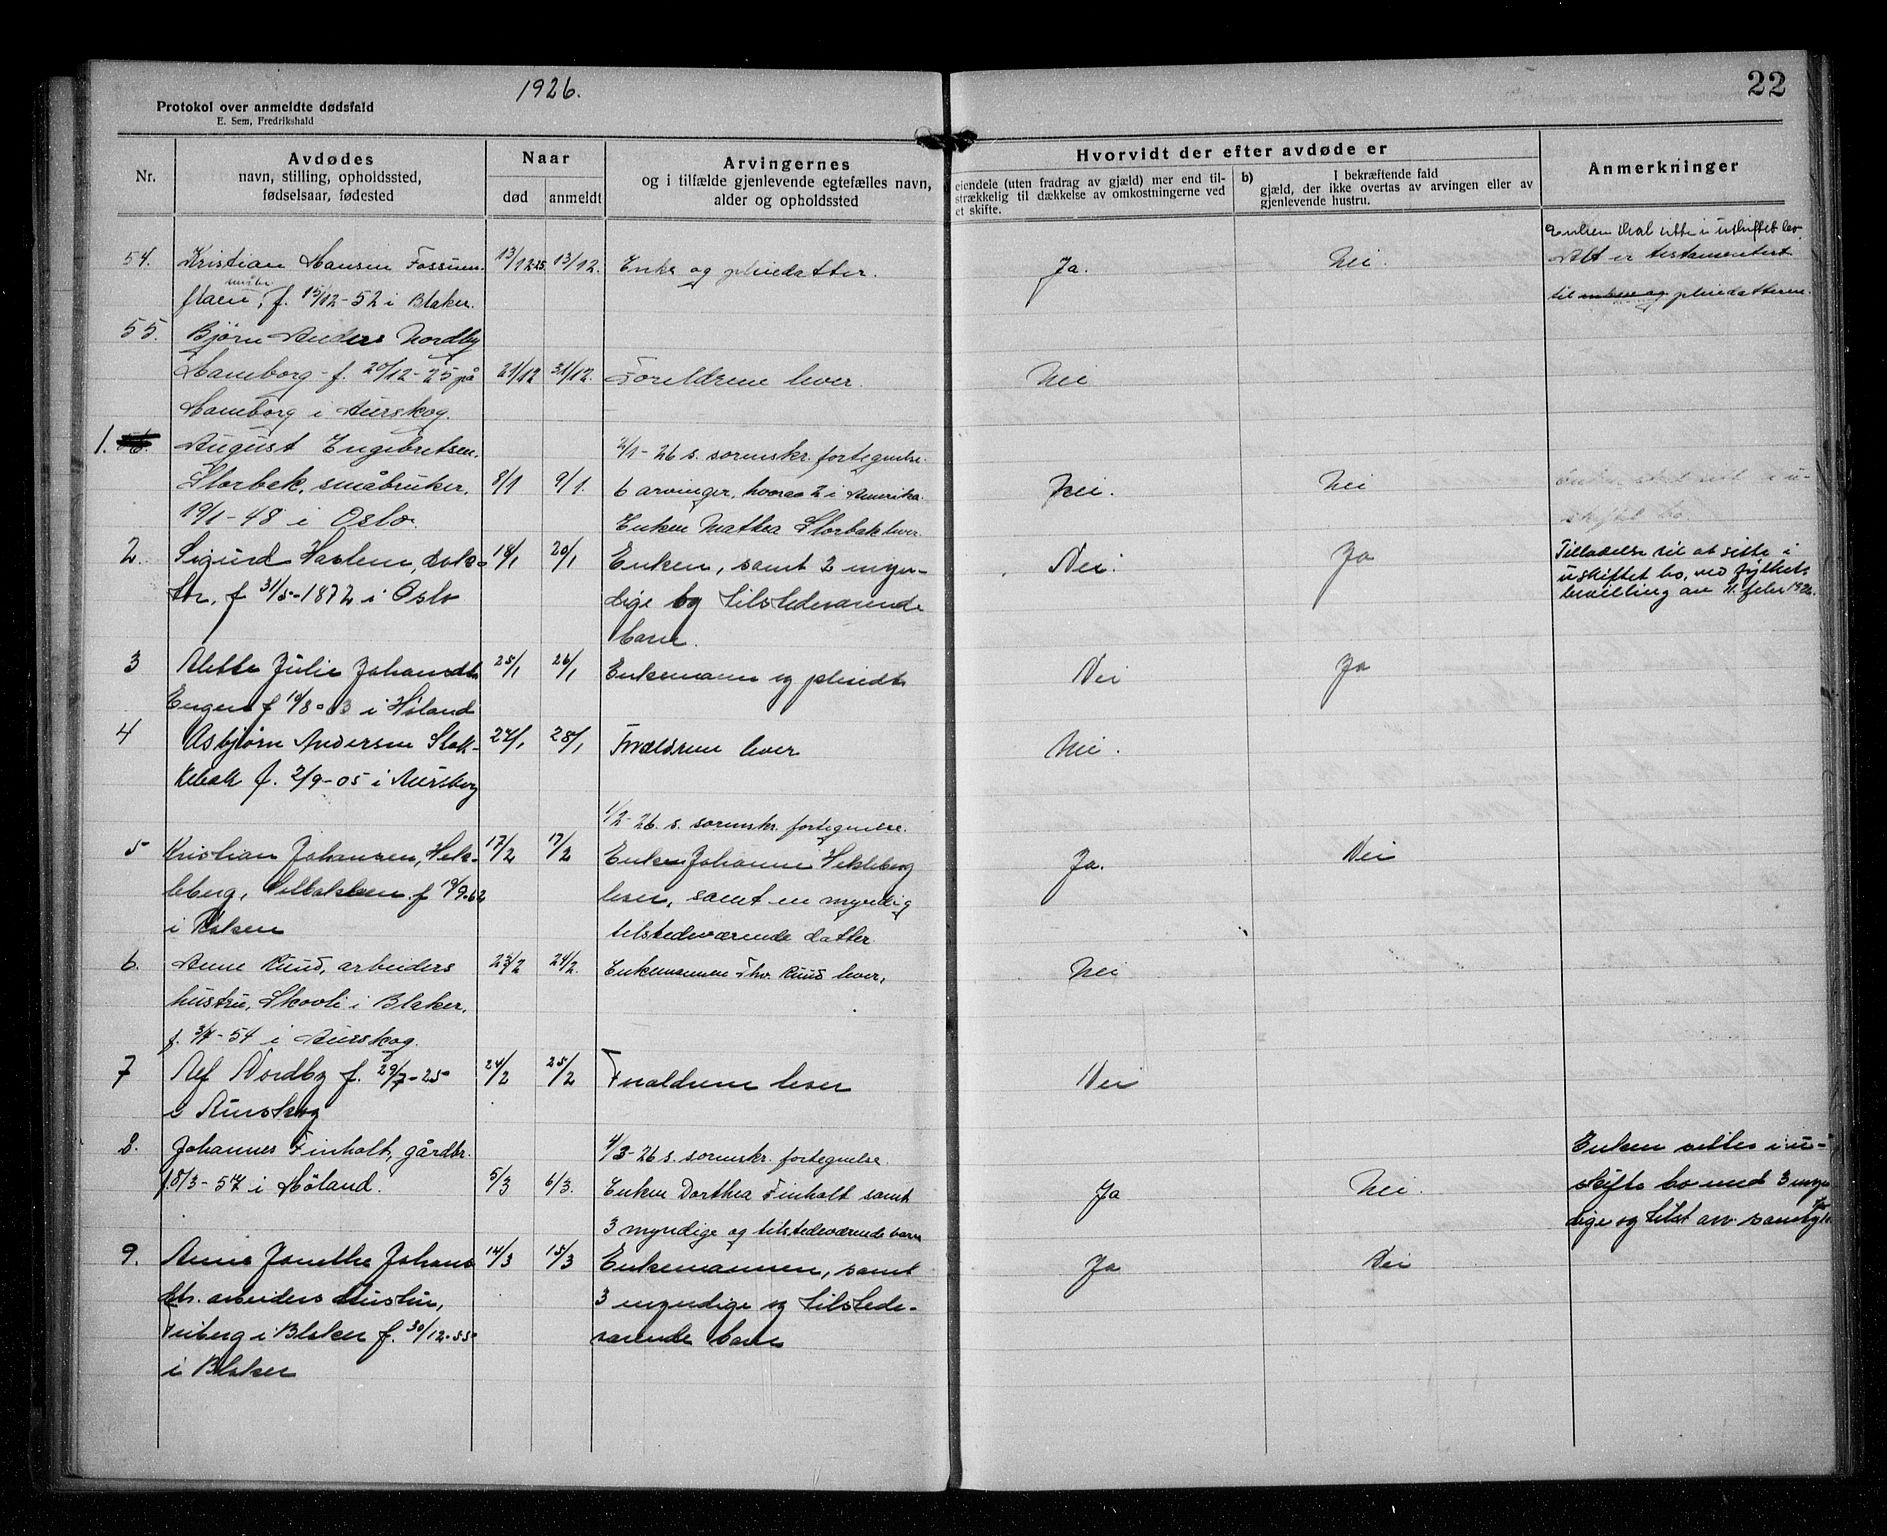 1926.
22
Protokol over anmeldte dødsfald
E. Sem, Fredrikshald
Nr.
Avdødes
navn, stilling, opholdssted,
fødselsaar, fødested
Naar
død
anmeldt
Arvingernes
og i tilfælde gjenlevende egtefælles navn,
alder og opholdssted
Hvorvidt der efter avdøde er
eiendele (uten fradrag av gjæld) mer end til-
strækkelig til dækkelse av omkostningerne ved
et skifte.
b) I bekræftende fald
gjæld, der ikke overtas av arvingen eller av
gjenlevende hustru.
Anmerkninger
54. Kristian Hansen Fossum 13/12-25 13/12. Enke og pleiedatter. Ja. Nei.
f. 15/12-52 i Blaker.
Enken skal sitte i uskiftet bo.
Alt er testamentert
til enken og pleiedatteren.
55. Bjørn Anders Nordby
Haneborg - f. 20/12-25 på 21/12 31/12. Foreldrene lever. Nei
Haneborg i Aurskog.
1. 56. August Engebretsen 2/1-26 s. sorenskr. fortegnelse.
Storbek, småbruker, 8/1 9/1. 6 arvinger, hvorav 2 i Amerika. Nei. Nei
19/1-48 i Oslo. Enken Mathea Storbak lever.
skiftet bo
2. Sigurd Harlem, dok- 18/1 20/1 Enken, samt 2 myn- Nei. Ja
tor, f 31/5-1872 i Oslo dige og tilstedeværende
barn.
Tilladelse til at sitte i
uskiftet bo, ved fylkets
bevilling av 11. febr 1926.
3 Alette Julie Johansdt. 25/1 26/1 Enkemann og pleiedt. Nei Ja
Enger f 14/8-03 i Høland
4 Asbjørn Andersen Stok- 27/1 28/1 Forældrene lever Nei.
kebæk f. 2/9-05 i Aurskog
1/2-26. s. sorenskr. fortegnelse.
5 Kristian Johansen, Hek- 17/2 17/2 Enken Johanne Hekleberg Ja. Nei
leberg, f 19/9-62 lever, samt en myndig
i Blaker tilstedeværende datter
6. Anne Ruud, arbeiders 23/2 24/2. Enkemannen Thv. Ruud lever, Nei
hustru, Skovli i Blaker,
f. 3/4-54 i Aurskog.
7 Alf Nordby f. 29/7-25 24/2 25/2 Forældrene lever Nei
i Aurskog
8. Johannes Finholt, gårdbr. 4/3-26 s. sorenskr. fortegnelse.
f. 8/3-57 i Høland. 5/3 6/3. Enken Dorthea Finholt samt Ja Nei.
3 myndige og tilstedeværende barn
Enken sittes i u-
skifte bo med 3 myn
dige og tilst arv. samtyk
9. Anne Janethe Johans 14/3 15/3 Enkemannen, samt Ja Nei
dtr. arbeiders hustru, 3 myndige og tilstede-
i Blaker f. 30/12-55 værende barn
i Blaker